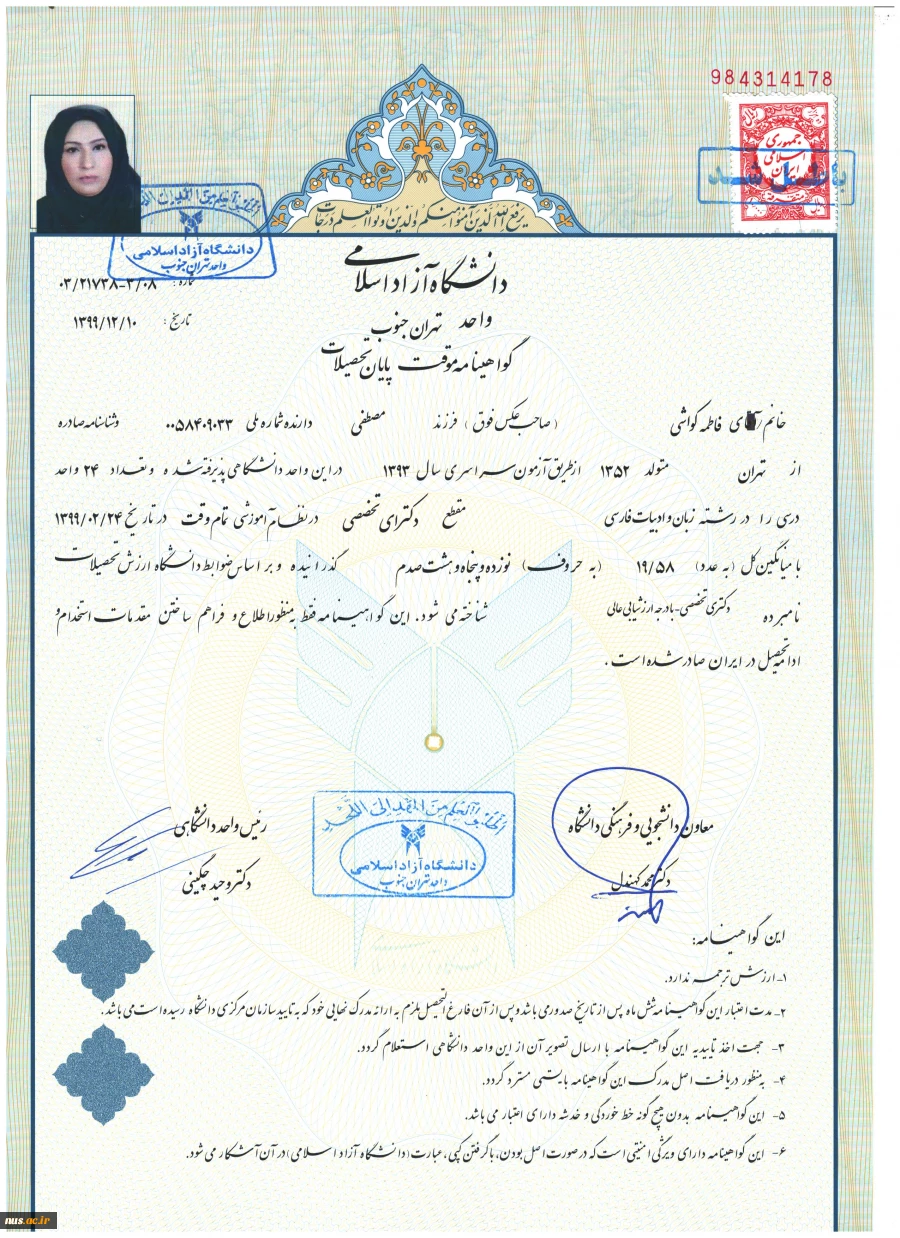 984314178
جمهوری
اسلامی
ایران
باطل شد
یرفع الله الذین آمنوا منکم والذین اوتوا العلم درجات
دانشگاه آزاد اسلامی
واحد تهران جنوب
دانشگاه آزاد اسلامی
شماره: ۰۳/۲۱۷۳۸-۳/۰۸
واحد تهران جنوب
تاریخ: ۱۳۹۹/۱۲/۱۰
گواهینامه موقت پایان تحصیلات
خانم/آقای فاطمه کواشی (صاحب عکس فوق) فرزند مصطفی دارنده شماره ملی ۰۰۵۸۴۰۹۰۳۳ و شناسنامه صادره
از تهران متولد ۱۳۵۲ از طریق آزمون سراسری سال ۱۳۹۳ در این واحد دانشگاهی پذیرفته شده و تعداد ۲۴ واحد
درسی را در رشته زبان و ادبیات فارسی مقطع دکترای تخصصی در نظام آموزشی تمام وقت در تاریخ ۱۳۹۹/۰۲/۲۴
با میانگین کل (به عدد) ۱۹/۵۸ (به حروف) نوزده و پنجاه و هشت صدم گذرانیده و بر اساس ضوابط دانشگاه ارزش تحصیلات
نامبرده دکتری تخصصی-با درجه ارزشیابی عالی شناخته می شود. این گواهینامه فقط به منظور اطلاع و فراهم ساختن مقدمات استخدام و
ادامه تحصیل در ایران صادر شده است.
معاون دانشجویی و فرهنگی دانشگاه
دکتر محمد کهندل
دانشگاه آزاد اسلامی
واحد تهران جنوب
رئیس واحد دانشگاهی
دکتر وحید چگینی
این گواهینامه:
۱- ارزش ترجمه ندارد.
۲- مدت اعتبار این گواهینامه شش ماه پس از تاریخ صدور می باشد و پس از آن فارغ التحصیل ملزم به ارائه مدرک نهایی خود که به تایید سازمان مرکزی دانشگاه رسیده است می باشد.
۳- جهت اخذ تاییدیه این گواهینامه با ارسال تصویر آن از این واحد دانشگاهی استعلام گردد.
۴- به منظور دریافت اصل مدرک این گواهینامه بایستی مسترد گردد.
۵- این گواهینامه بدون هیچ گونه خط خوردگی و خدشه دارای اعتبار می باشد.
۶- این گواهینامه دارای ویژگی امنیتی است که در صورت اصل بودن، با گرفتن کپی، عبارت (دانشگاه آزاد اسلامی) در آن آشکار می شود.
nus.ac.ir